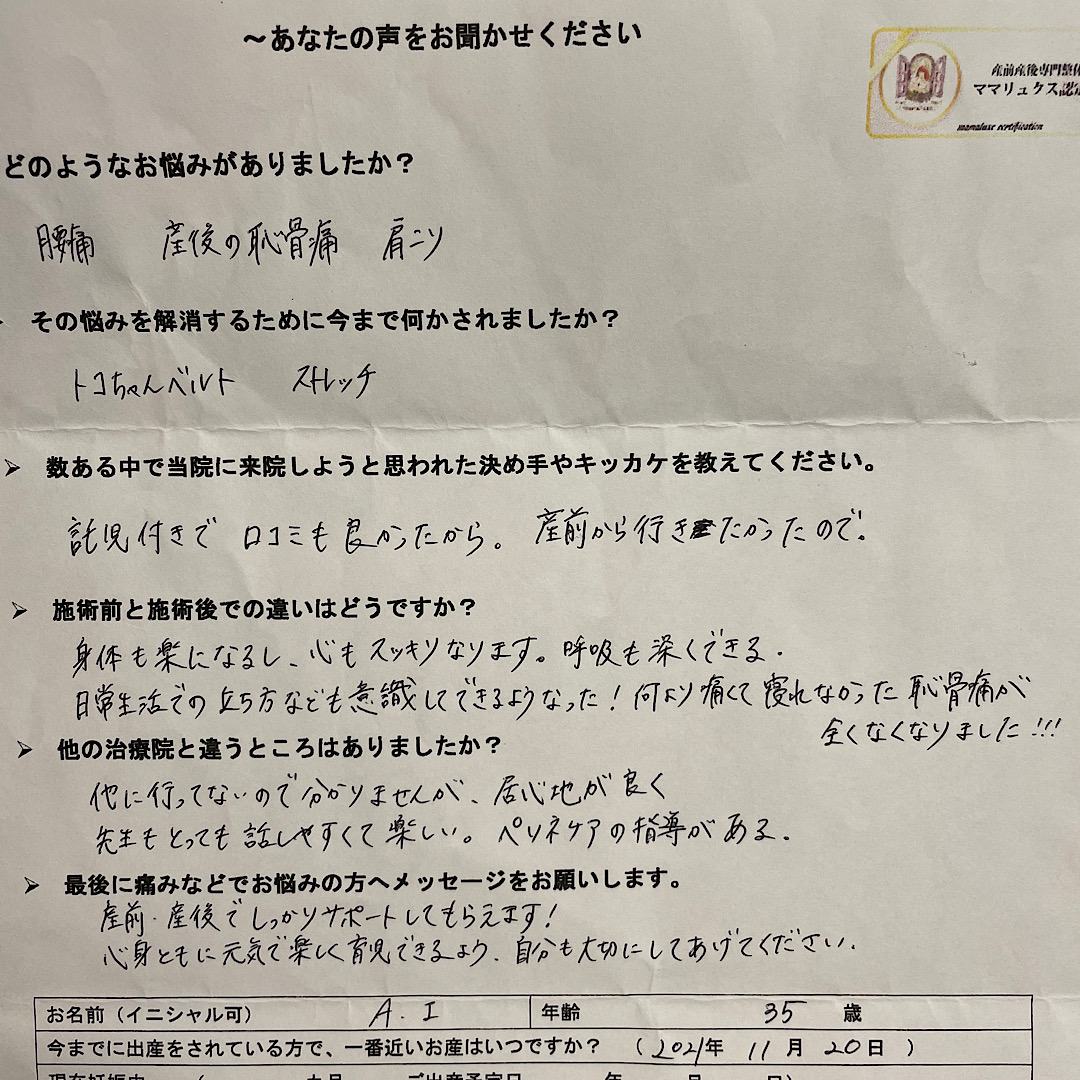 ～あなたの声をお聞かせください
産前産後専門整体
ママリュクス認定
mamaluxe certification
どのようなお悩みがありましたか？
腰痛　産後の恥骨痛　肩こり
その悩みを解消するために今まで何かされましたか？
トコちゃんベルト　ストレッチ
➢ 数ある中で当院に来院しようと思われた決め手やキッカケを教えてください。
託児付きで 口コミも良かったから。 産前から行きたかったので。
➢ 施術前と施術後での違いはどうですか？
身体も楽になるし、心もスッキリなります。呼吸も深くできる.
日常生活での立ち方なども意識してできるようなった！何より痛くて寝れなかった恥骨痛が
全くなくなりました!!!
➢ 他の治療院と違うところはありましたか？
他に行ってないので分かりませんが、居心地が良く
先生もとっても話しやすくて楽しい。ペリネケアの指導がある.
➢ 最後に痛みなどでお悩みの方へメッセージをお願いします。
産前・産後でしっかりサポートしてもらえます！
心身ともに元気で楽しく育児できるよう、自分も大切にしてあげてください.
お名前（イニシャル可） A. I 年齢 35 歳
今までに出産をされている方で、一番近いお産はいつですか？ （2021年 11月 20日 ）